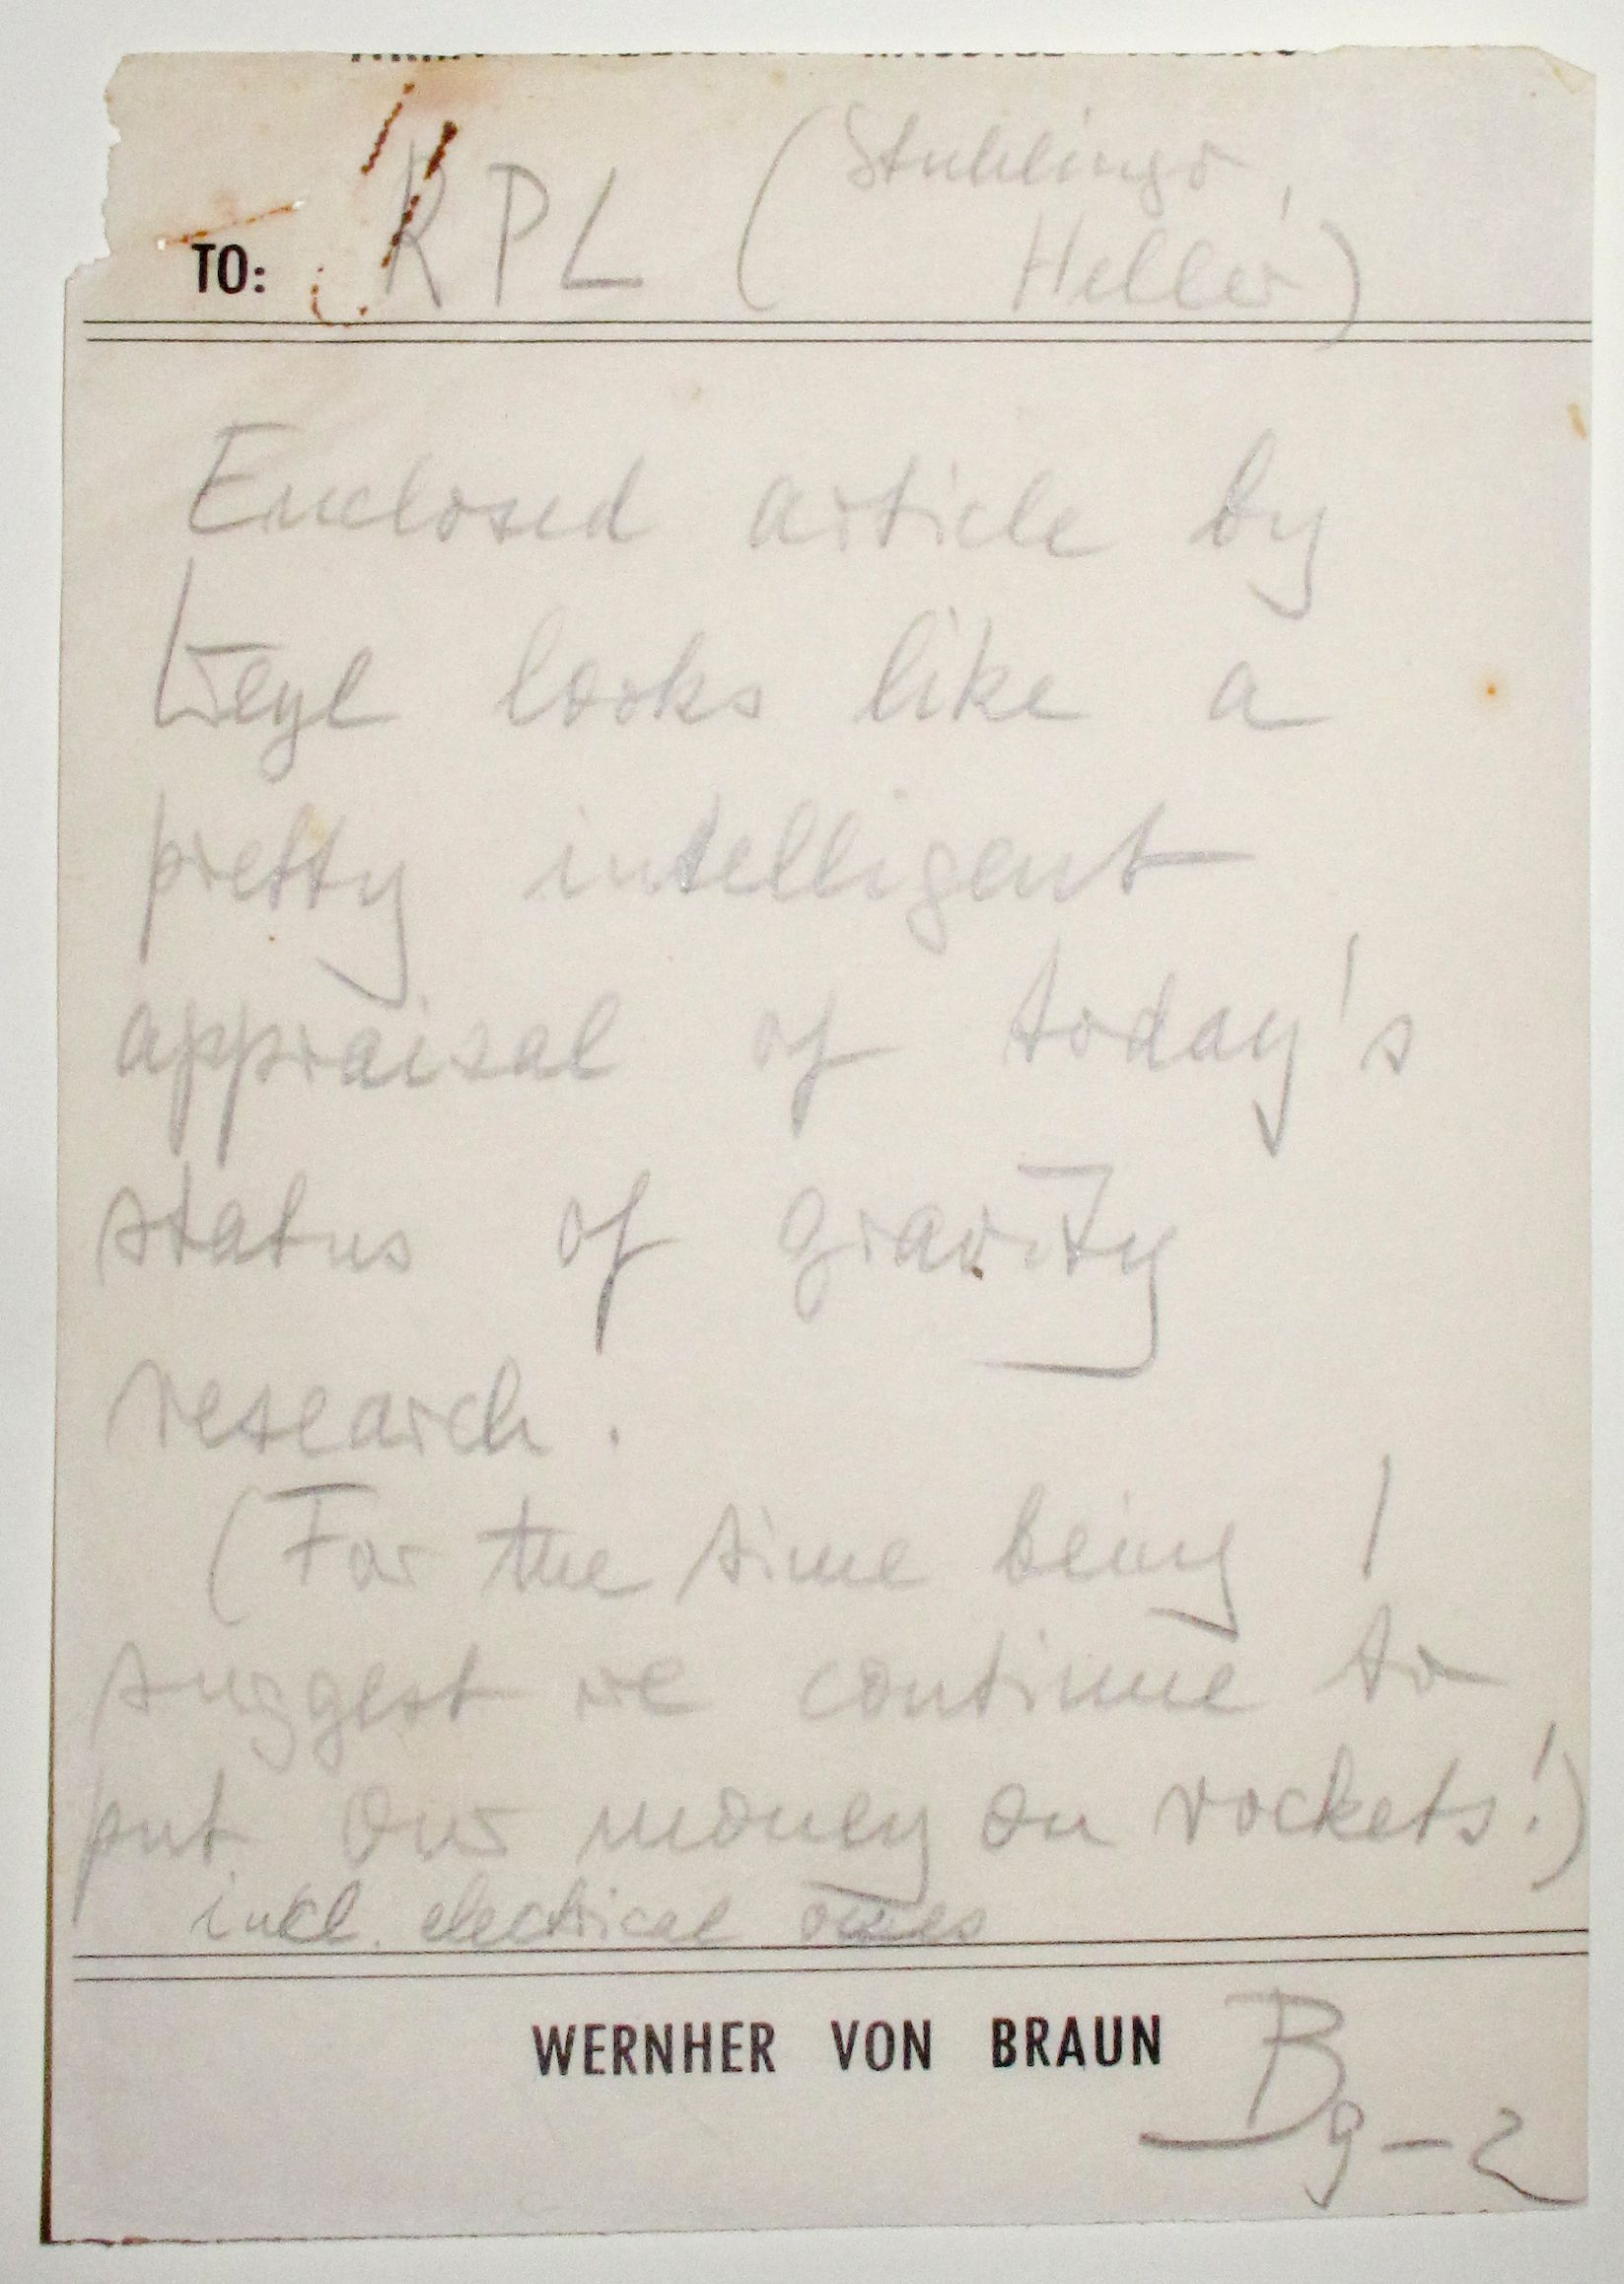 TO: RPL (Stuhlinger,
Heller)
Enclosed article by
Weyl looks like a
pretty intelligent
appraisal of today's
status of gravity
research.
(For the time being I
suggest we continue to
put our money on rockets!)
incl. electrical ones
WERNHER VON BRAUN B
9-2